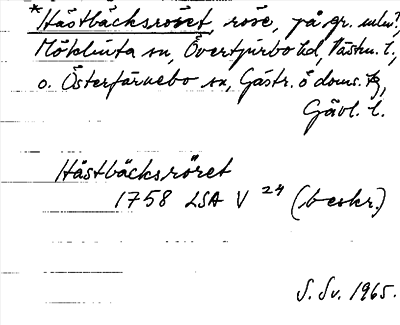 *Hästbäcksröset, röse, på gr. mln?,
Möklinta sn, Övertjurbo hd, Västm. l.,
o. Österfärnebo sn, Gästr. ö doms. tg,
Gävl. l.
Hästbäcksröret
1758 LSA V 24 (beskr.)
S. Sv. 1965.